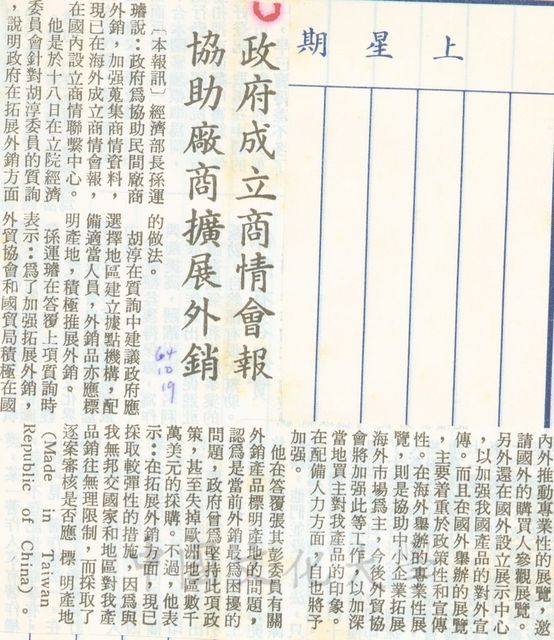 上星期
政府成立商情會報
協助廠商擴展外銷
〔本報訊〕經濟部長孫運
璿說：政府爲協助民間廠商
外銷，加强蒐集商情資料，
現已在海外成立商情會報，
在國內設立商情聯繫中心。
他是於十八日在立院經濟
委員會針對胡淳委員的質詢
，說明政府在拓展外銷方面
的做法。
胡淳在質詢中建議政府應
選擇地區建立據點機構，配
備適當人員，外銷品亦應標
明產地，積極推展外銷。
孫運璿在答覆上項質詢時
表示：爲了加强拓展外銷，
外貿協會和國貿局積極在國
64
10
19
內外推動專業性的展覽，激
請國外的購買人參觀展覽。
另外還在國外設立展示中心
，以加强我國產品的對外宣
傳。而且在國外舉辦的展覽
，主要着重於政策性和宣傳
性。在海外舉辦的專業性展
覽，則是協助中小企業拓展
海外市場爲主，今後外貿協
會將加强此等工作，以加深
當地買主對我產品的印象。
在配備人力方面，自也將予
加强。
他在答覆張其彭委員有關
外銷產品標明產地的問題，
認爲是當前外銷最爲困擾的
問題，政府曾爲堅持此項政
策，甚至失掉歐洲地區數千
萬美元的採購。不過，他表
示：在拓展外銷方面，現已
採取較彈性的措施，因爲與
我無邦交國家和地區對我產
品銷往無理限制，而採取了
逐案審核是否應標明產地
（Made in Taiwan
Republic of China）。